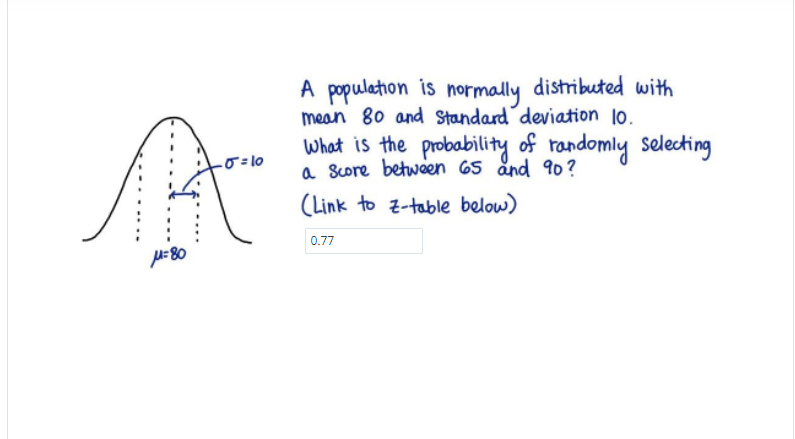 A population is normally distributed with
mean 80 and standard deviation 10.
What is the probability of randomly selecting
a score between 65 and 90?
(Link to z-table below)
0.77
σ=10
μ=80